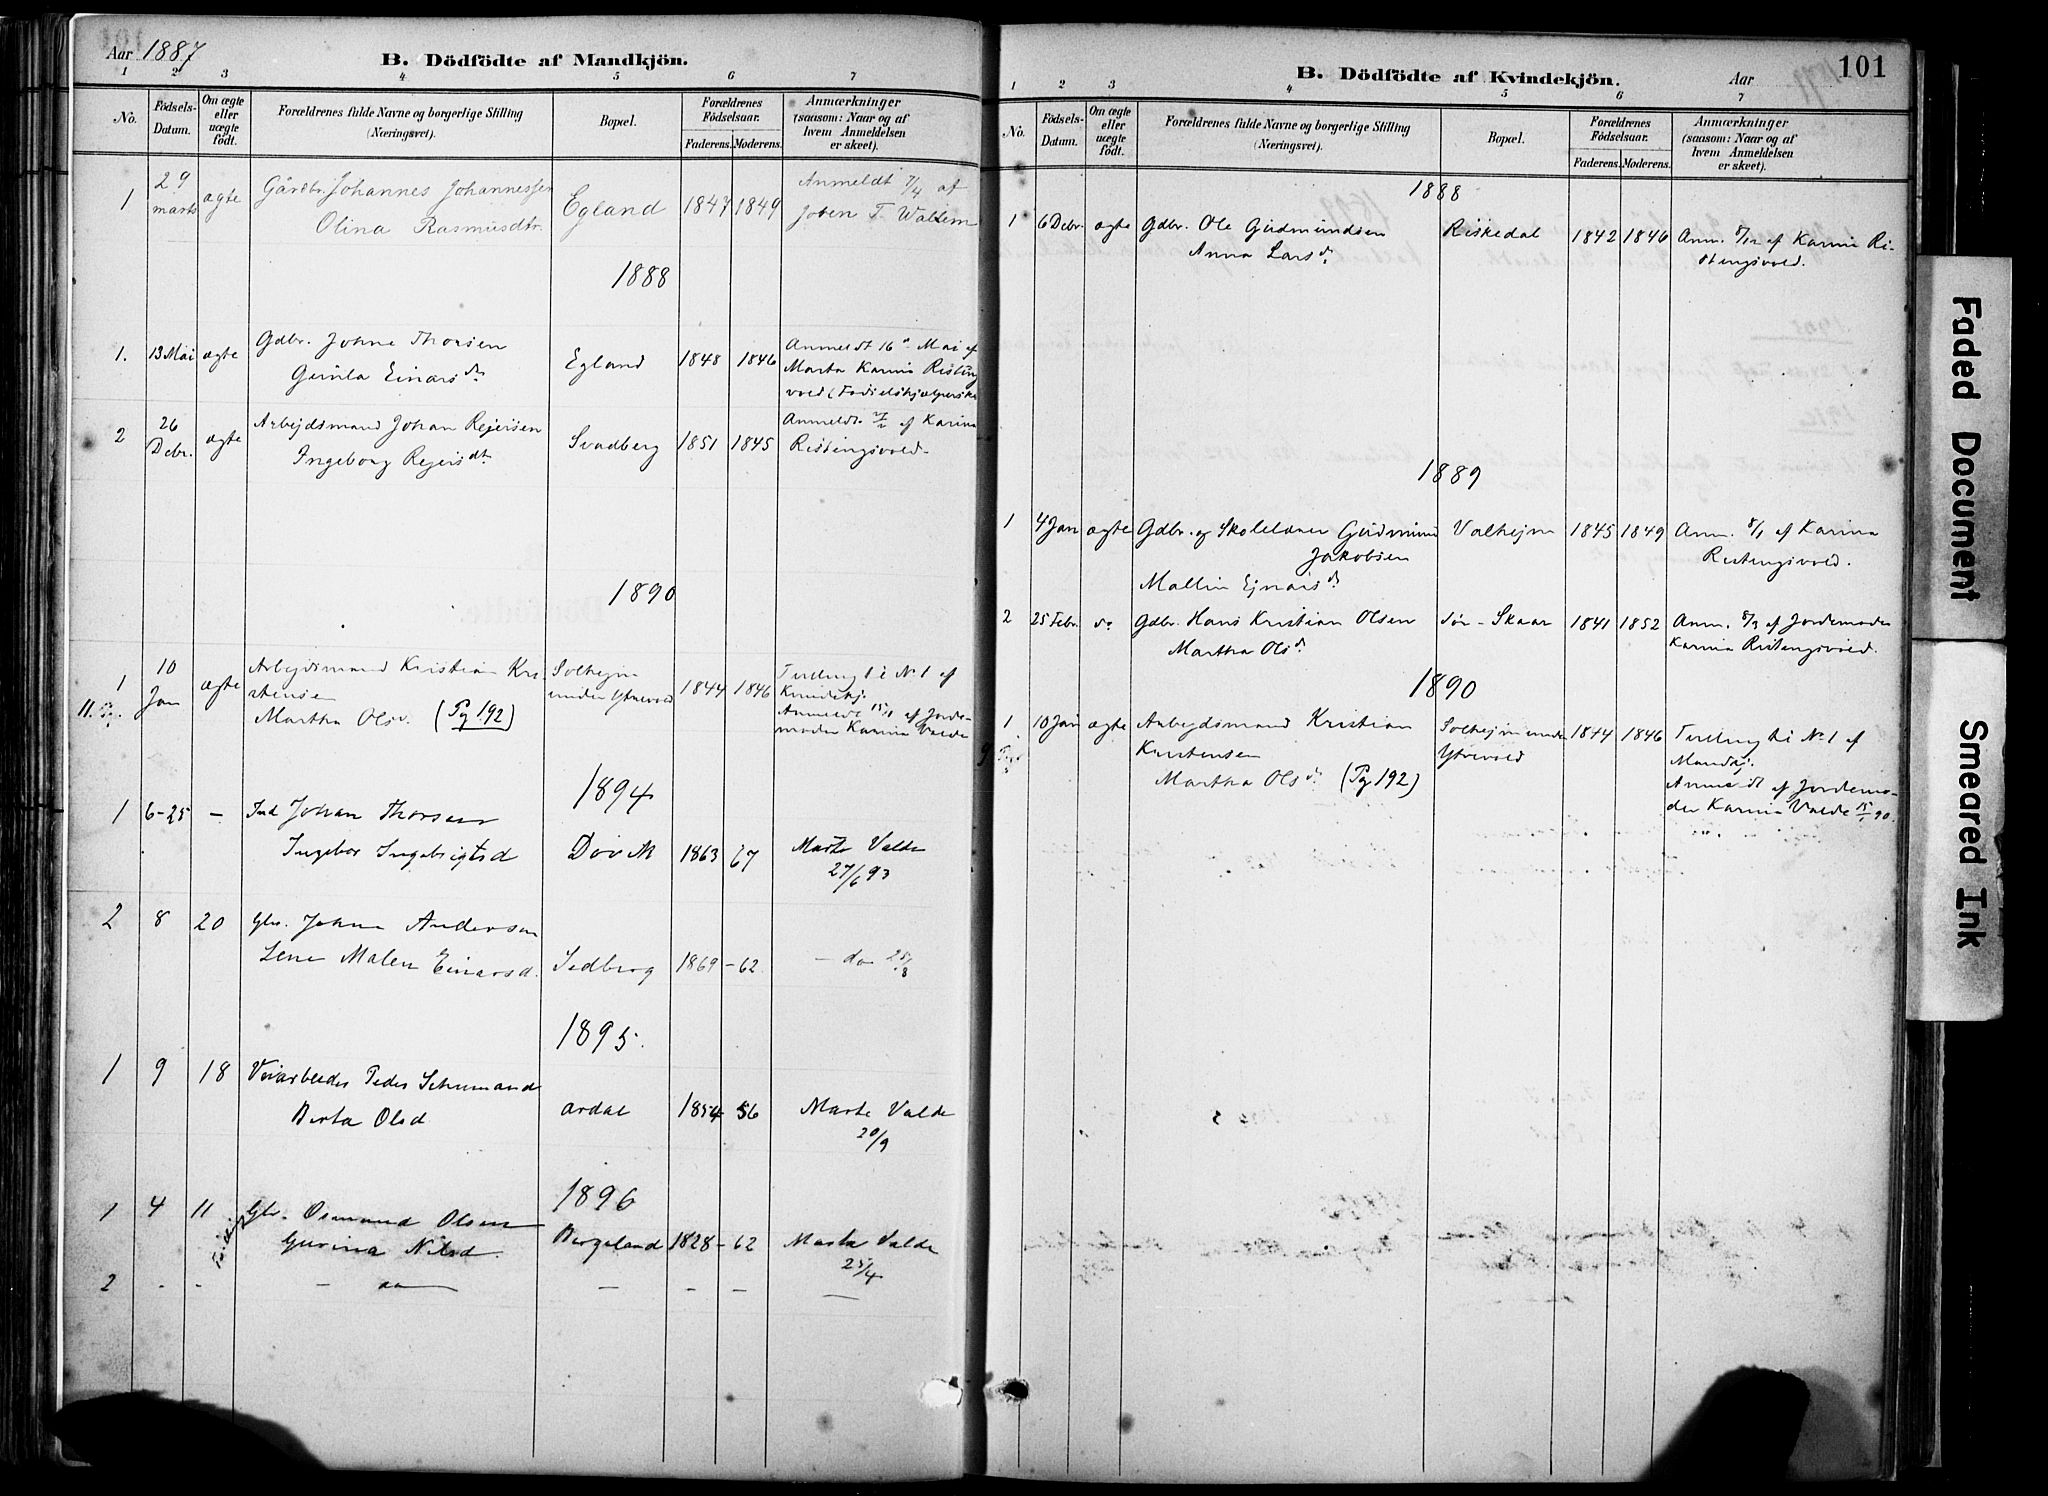 Aar 1887
B. Dödfödte af Mandkjön.
1 2 3 4 5 6 7
No.
Födsels-Datum.
Om ægte eller uægte födt.
Forældrenes fulde Navne og borgerlige Stilling
(Næringsvei).
Bopæl.
Forældrenes Födselsaar.
Faderens. Moderens.
Anmærkninger
(saasom: Naar og af
hvem Anmeldelsen
er skeet).
1 29 marts ægte Gårdbr. Johannes Johannessen Egland 1847 1849 Anmeldt 7/4 af
Olina Rasmusdtr.
1888
1. 13 Mai ægte Gdbr. Johne Thorsen Egland 1848 1846 Anmeldt 16 Mai af
Gunla Einarsd. Marta Karina Risting
vold
2 26 Debr. ægte Arbejdsmand Johan Rejersen Svadberg 1851 1845 Anmeldt af Karina
Ingeborg Rejersdt. Ristingsvold.
1890
1 10 Jan ægte Arbejdsmand Kristian Kri- Solhejm 1844 1846 Tvilling til No 1 af
stensen under Ytrevold Kvindekj.
Martha Olsd. (Pg 192) Anmeldt 15/1 af Jorde-
moder Karina Valde
1894
1 6-25 — Ind Johan Thorsen
Ingebor Ingebrigtsd 1863 67 Marte Valde
27/6 93
2 8 20 Gbr. Johne Andersen
Lene Malen Einarsd. Sedberg 1869 - 62 — do 25/8
1895.
1 9 18 Veiarbeider Peder
Berta Olsd ardal 1854 56 Marte Valde
20/9
1896
1 4 11 Gbr. Osmund Olsen
Gurina Nilsd. Bergeland 1828 - 62 Marta Valde
25/4
2 - - — — - — —
101
B. Dödfödte af Kvindekjön.
Aar
1 2 3 4 5 6 7
No.
Födsels-Datum.
Om ægte eller uægte födt.
Forældrenes fulde Navne og borgerlige Stilling
(Næringsvei).
Bopæl.
Forældrenes Födselsaar.
Faderens. Moderens.
Anmærkninger
(saasom: Naar og af
hvem Anmeldelsen
er skeet).
1888
1 6 Debr. ægte Gdbr. Ole Gudmundsen Riskedal 1842 1846 Anm. 8/12 af Karina Ri-
Anna Larsd. stingsvold.
1889
1 4 Jan ægte Gdbr. og Skolelærer Gudmund Valhejm 1845 1849 Anm. 8/1 af Karina
Jakobsen Ristingsvold.
Mallin Ejnarsd.
2 25 Febr. do Gdbr. Hans Kristian Olsen Sør-Skaar 1841 1852 Anm. 8/3 af Jordemoder
Martha Olsd. Karina Ristingsvold.
1890
1 10 Jan ægte Arbejdsmand Kristian Solhejm under 1844 1846 Tvilling til No 1 af
Kristensen Ytrevold Mandkj.
Martha Olsd. (Pg 192) Anmeldt af Jordemo-
der Karina Valde 15/1 90.
Faded Document
Smeared Ink